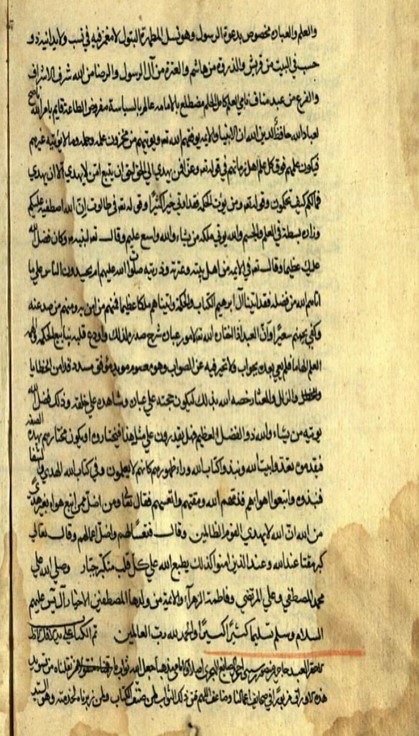 والعلم والعبادة مخصوص بدعوة الرسول وهو نسل المطهرة البتول لا مغمز فيه في نسب ولا يدانيه ذو
حسب في البيت من قريش والذروة من هاشم والعترة من آل الرسول والرضا من الله شرف الاشراف
والفرع من عبد مناف نامي العلم كامل الحلم مضطلع بالامامة عالم بالسياسة مفروض الطاعة قائم بامر الله
لعباد الله حافظ لدين الله ان الانبياء والائمة يوفقهم الله ويؤتيهم من مخزون علمه وحلمه ما لا يؤتيه غيرهم
فيكون علمهم فوق كل علم اهل زمانهم في قوله افمن يهدي الى الحق احق ان يتبع امن لا يهدي الا ان يهدى
فما لكم كيف تحكمون وقوله ومن يؤت الحكمة فقد اوتي خيرا كثيرا وقوله في طالوت ان الله اصطفيه عليكم
وزاده بسطة في العلم والجسم والله يؤتي ملكه من يشاء والله واسع عليم وقال لنبيه وكان فضل الله
عليك عظيما وقال في الائمة من اهل بيته وعترته وذريته صلوات الله عليهم ام يحسدون الناس على ما
اتاهم الله من فضله فقد اتينا آل ابراهيم الكتاب والحكمة واتيناهم ملكا عظيما فمنهم من امن به ومنهم من صد عنه
وكفى بجهنم سعيرا وان العبد اذا اختاره الله لامور عباده شرح صدره لذلك واودع قلبه ينابيع الحكمة والهمه
العلم الهاما فلم يعي بعده بجواب ولا تحير فيه عن الصواب وهو معصوم مؤيد موفق مسدد قد امن الخطايا
والزلل والعثار خصه الله بذلك ليكون حجته على عباده وشاهده على خلقه وذلك فضل الله
يؤتيه من يشاء والله ذو الفضل العظيم فهل يقدرون على مثل هذا فيختاروه او يكون مختارهم بهذه الصفة
فيقدمونه تعدوا وبيت الله ونبذوا كتاب الله وراء ظهورهم كانهم لا يعلمون وفي كتاب الله الهدى والشفاء
فنبذوه واتبعوا اهواءهم فذمهم الله ومقتهم واتعسهم فقال ومن اضل ممن اتبع هواه بغير هدى
من الله ان الله لا يهدي القوم الظالمين وقال فتعسا لهم واضل اعمالهم وقال تعالى
كبر مقتا عند الله وعند الذين امنوا كذلك يطبع الله على كل قلب متكبر جبار وصلى الله على
محمد المصطفى وعلي المرتضى وفاطمة الزهراء والائمة من ولدها المصطفين الاخيار آل يس عليهم
السلام وسلم تسليما كثيرا كثيرا والحمد لله رب العالمين تم الكتاب